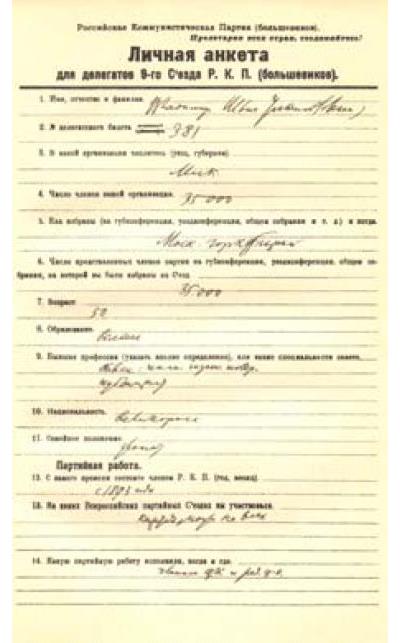 Российская Коммунистическая Партия (большевиков).
Пролетарии всех стран, соединяйтесь!
Личная анкета
для делегатов 9-го С'езда Р. К. П. (большевиков).
1. Имя, отчество и фамилия
2. № делегатского билета 381
3. В какой организации состоите (уезд, губерния)
Моск
4. Число членов вашей организации 35 000
5. Как избраны (на губконференции, уездконференции, общем собрании и т. д.) и когда
Моск.
6. Число представленных членов партии на губконференции, уездконференции, общем со-
брании, на которой вы были избраны на С'езд
35.000
7. Возраст
8. Образование
9. Бывшая профессия (указать вполне определенно), или какие специальности знаете.
10. Национальность
великоросс
11. Семейное положение
женат
Партийная работа.
12. С какого времени состоите членом Р. К. П. (год, месяц)
с 1893
13. На каких Всероссийских партийных С'ездах вы участвовали.
14. Какую партийную работу исполняли, когда и где